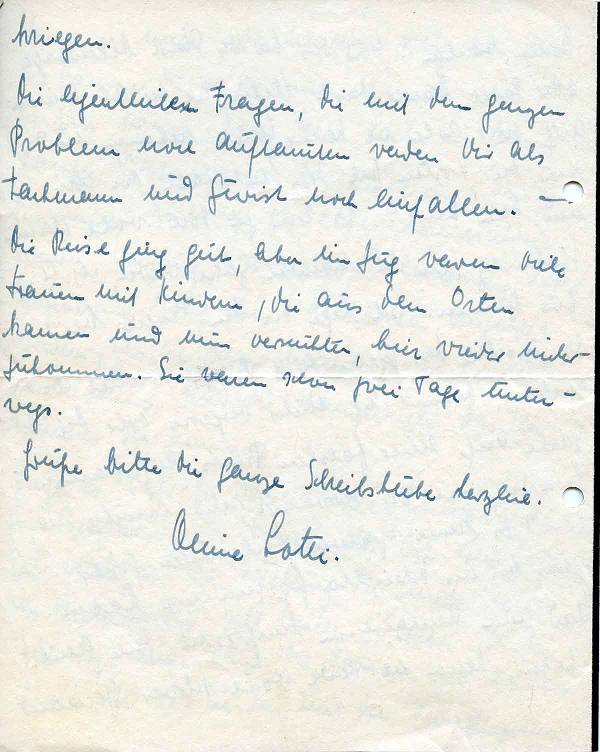 kriegen.
Die eigentlichen Fragen, die mit dem ganzen
Problem noch auftauchen werden Dir als
Fachmann und Jurist noch einfallen. —
Die Reise ging gut, aber im Zug waren viele
Frauen mit Kindern, die aus dem Osten
kamen und nun versuchten, hier wieder unter-
zukommen. Sie waren schon zwei Tage unter-
wegs.
Grüße bitte die ganze Schreibstube herzlich.
Deine Lotti.